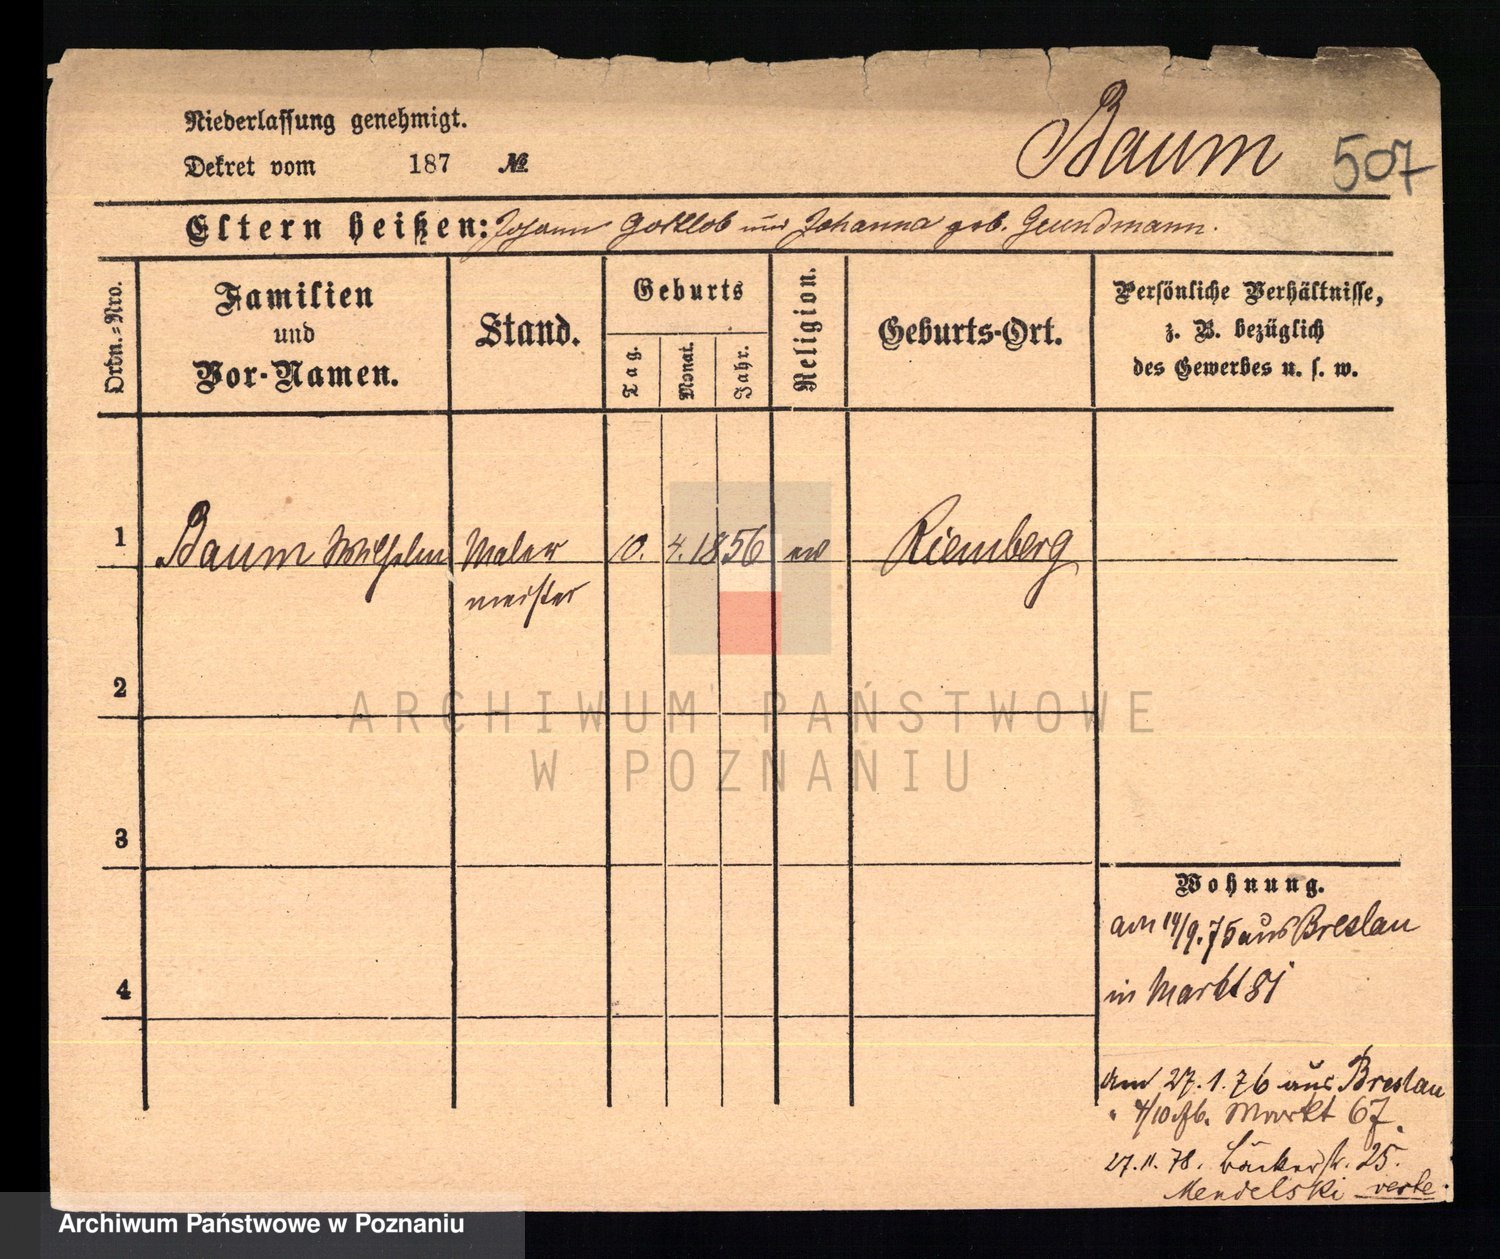 Niederlassung genehmigt.
Dekret vom 187 №
Baum 507
Eltern heißen: Johann Gottlob und Johanna geb. Grundmann.
Ordn.-Nro.
Familien
und
Vor-Namen.
Stand.
Geburts
Tag.
Monat.
Jahr.
Religion.
Geburts-Ort.
Persönliche Verhältnisse,
z. B. bezüglich
des Gewerbes u. s. w.
1 Baum Wilhelm Maler 10. 4. 1856 ev Riemberg
meister
2
ARCHIWUM PAŃSTWOWE
W POZNANIU
3
Wohnung.
am 14/9.75 aus Breslau
4
in Markt 81
am 27.1.76 aus Breslau
" 4/10 Markt 67.
27.11.78. Bäckerstr. 25.
Mendelski
Archiwum Państwowe w Poznaniu